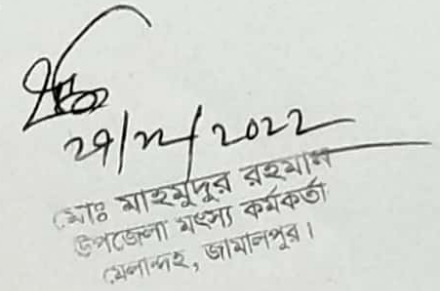 ২৭/১২/২০২২
মোঃ মাহমুদুর রহমান
উপজেলা মৎস্য কর্মকর্তা
মেলান্দহ, জামালপুর।